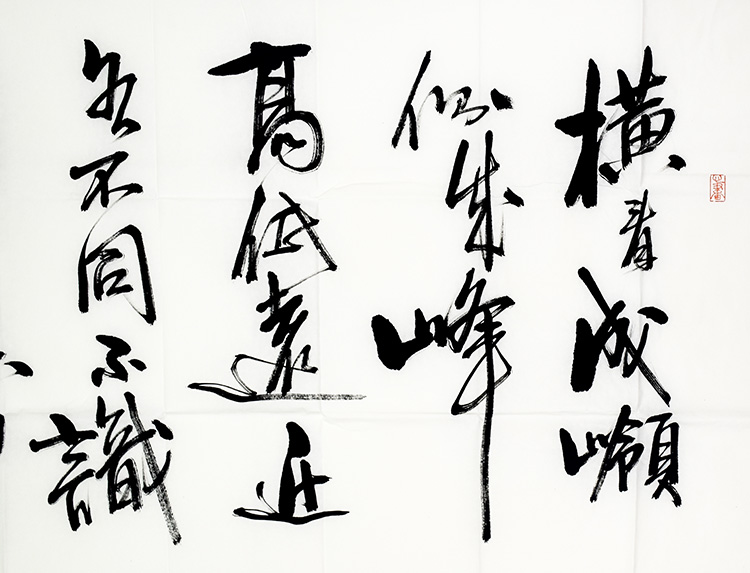 橫看成嶺
側成峰
高低遠近
各不同不識